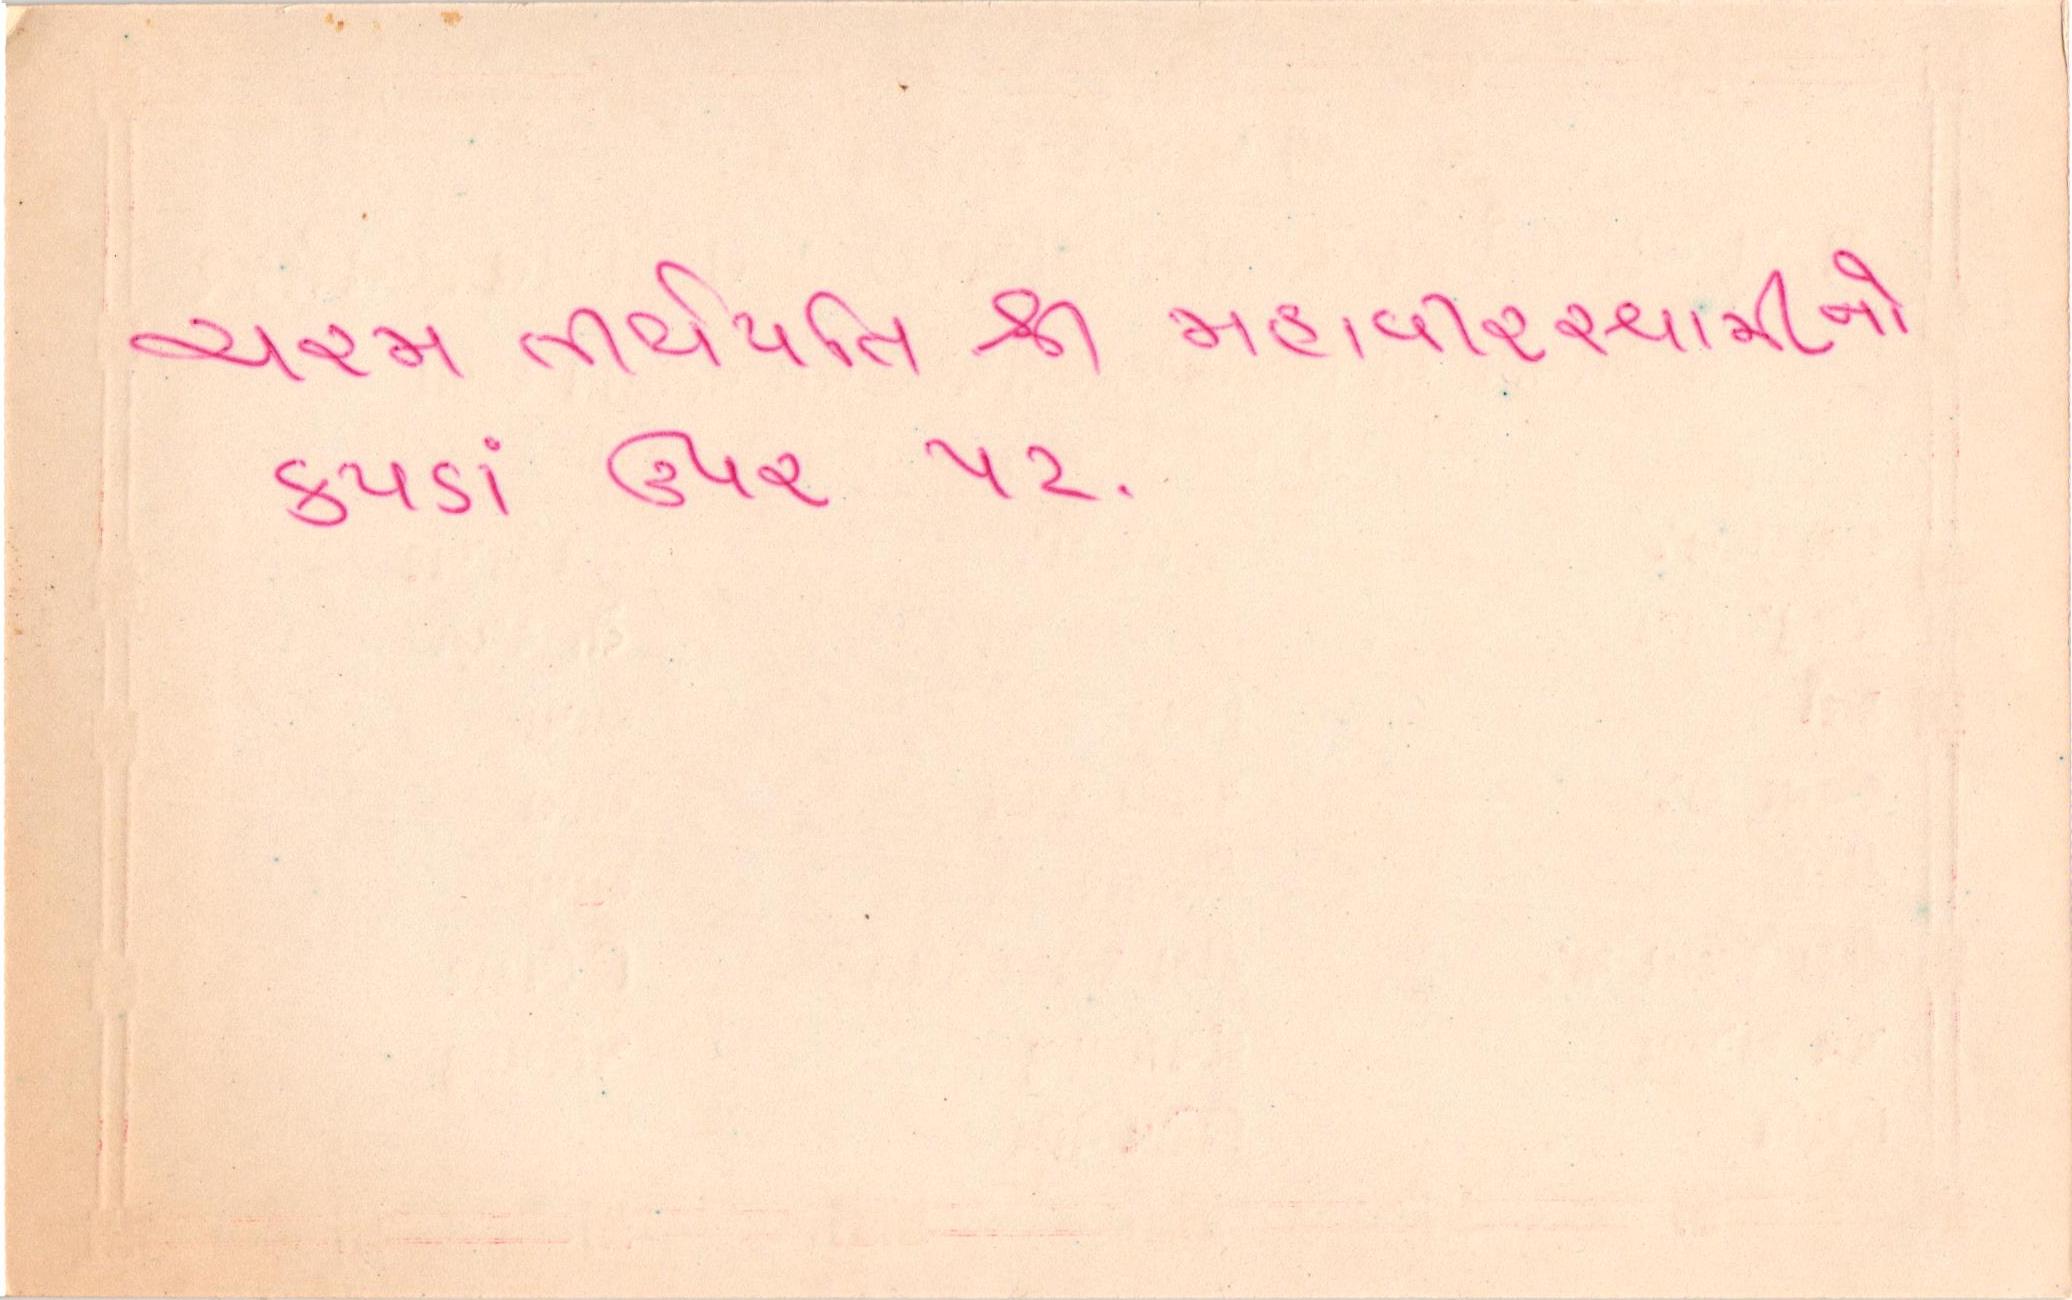 ચરમ તીર્થપતિ શ્રી મહાવીરસ્વામીનો
કપડાં ઉપર પટ.